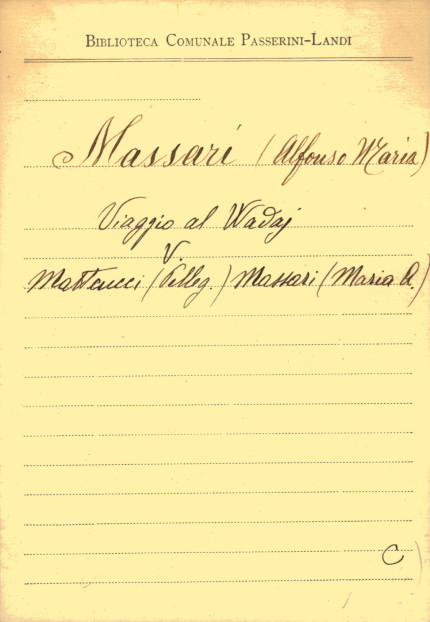 BIBLIOTECA COMUNALE PASSERINI-LANDI
Massari (Alfonso Maria)
Viaggio al Wadaj
V.
Matteucci (Pelleg.) Massari (Maria A.)
C